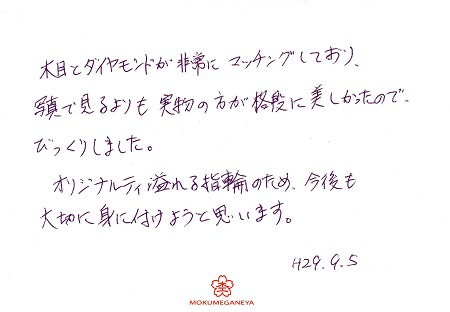 木目とダイヤモンドが非常にマッチングしており、
写真で見るよりも実物の方が格段に美しかったので、
びっくりしました。
オリジナルティ溢れる指輪のため、今後も
大切に身に付けようと思います。
H29.9.5
MOKUMEGANEYA